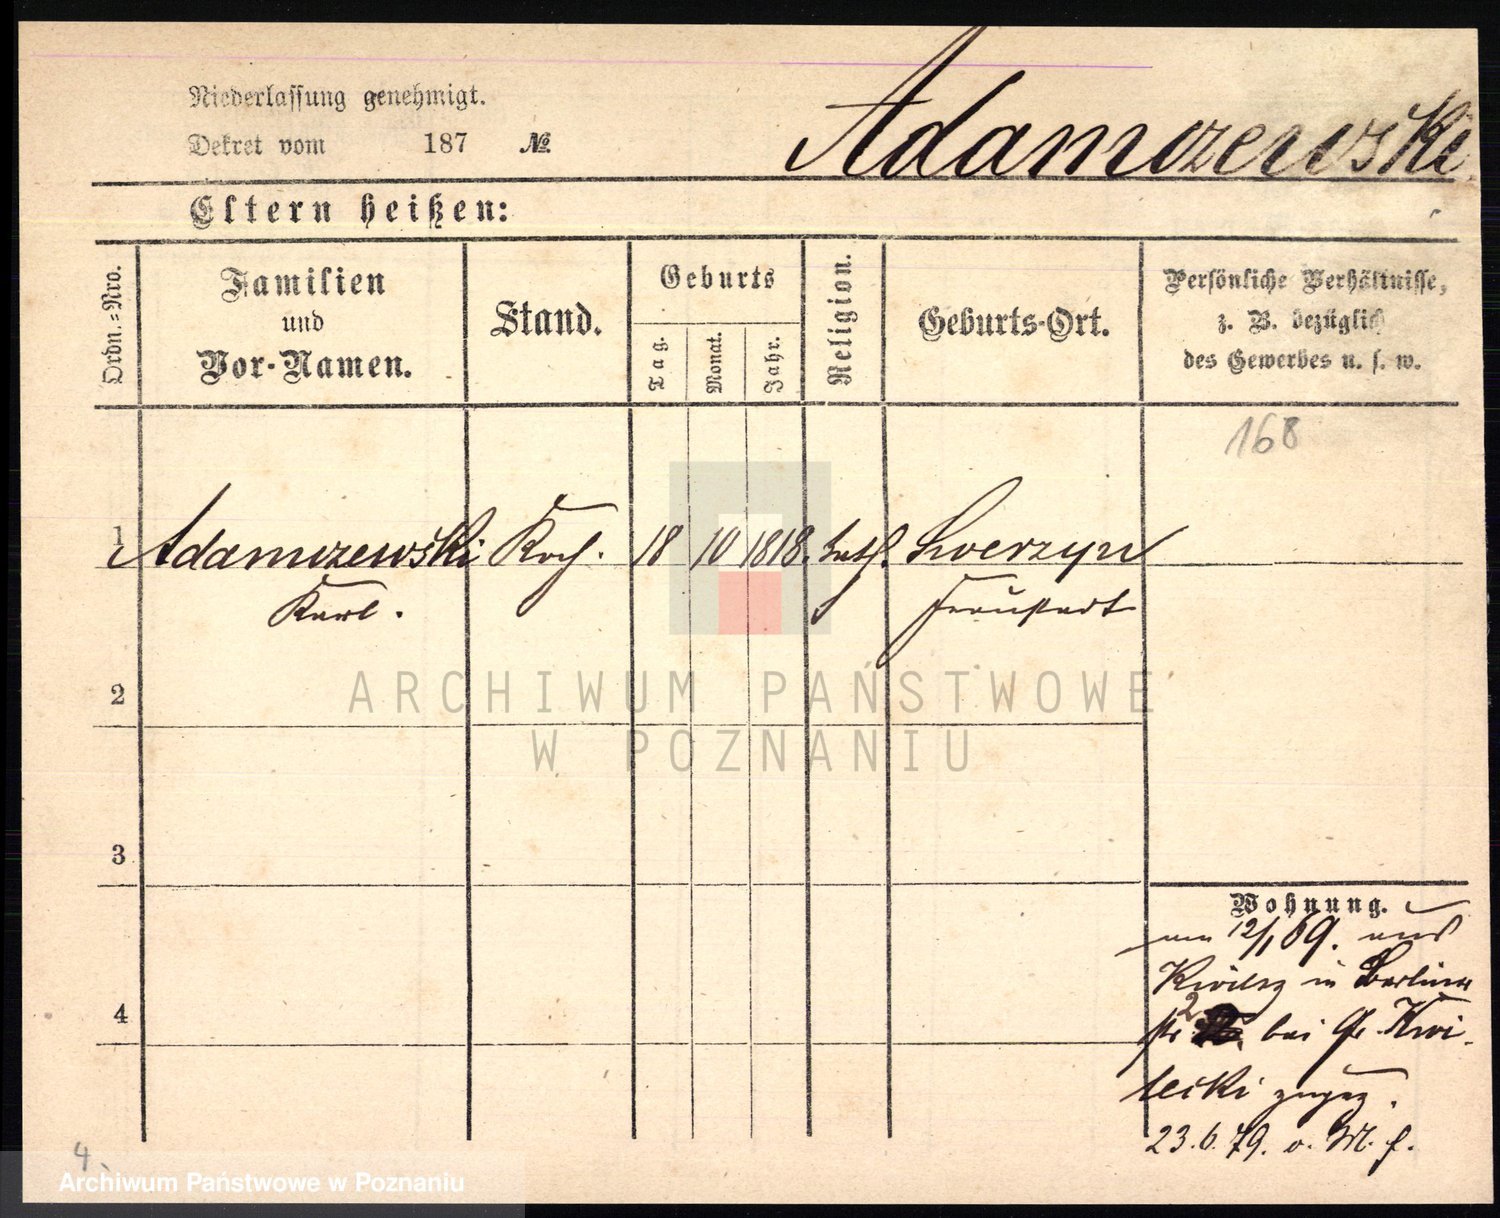 Niederlassung genehmigt.
Dekret vom 187 №
Adamczewski
Eltern heißen:
Ordn.=Nro.
Familien
und
Vor-Namen.
Stand.
Geburts
Tag.
Monat.
Jahr.
Religion.
Geburts-Ort.
Persönliche Verhältnisse,
z. B. bezüglich
des Gewerbes u. s. w.
168
1 Adamczewski Koch. 18 10 1818. kath. Zwerzyn
Karl. Fraustadt
2
ARCHIWUM PAŃSTWOWE
W POZNANIU
3
4
Wohnung.
am 12/1 69. aus
Kwilcz in Berliner
str 2 bei Gr. Kwi-
lecki zugez.
23.6.79. o. M. f.
4.
Archiwum Państwowe w Poznaniu